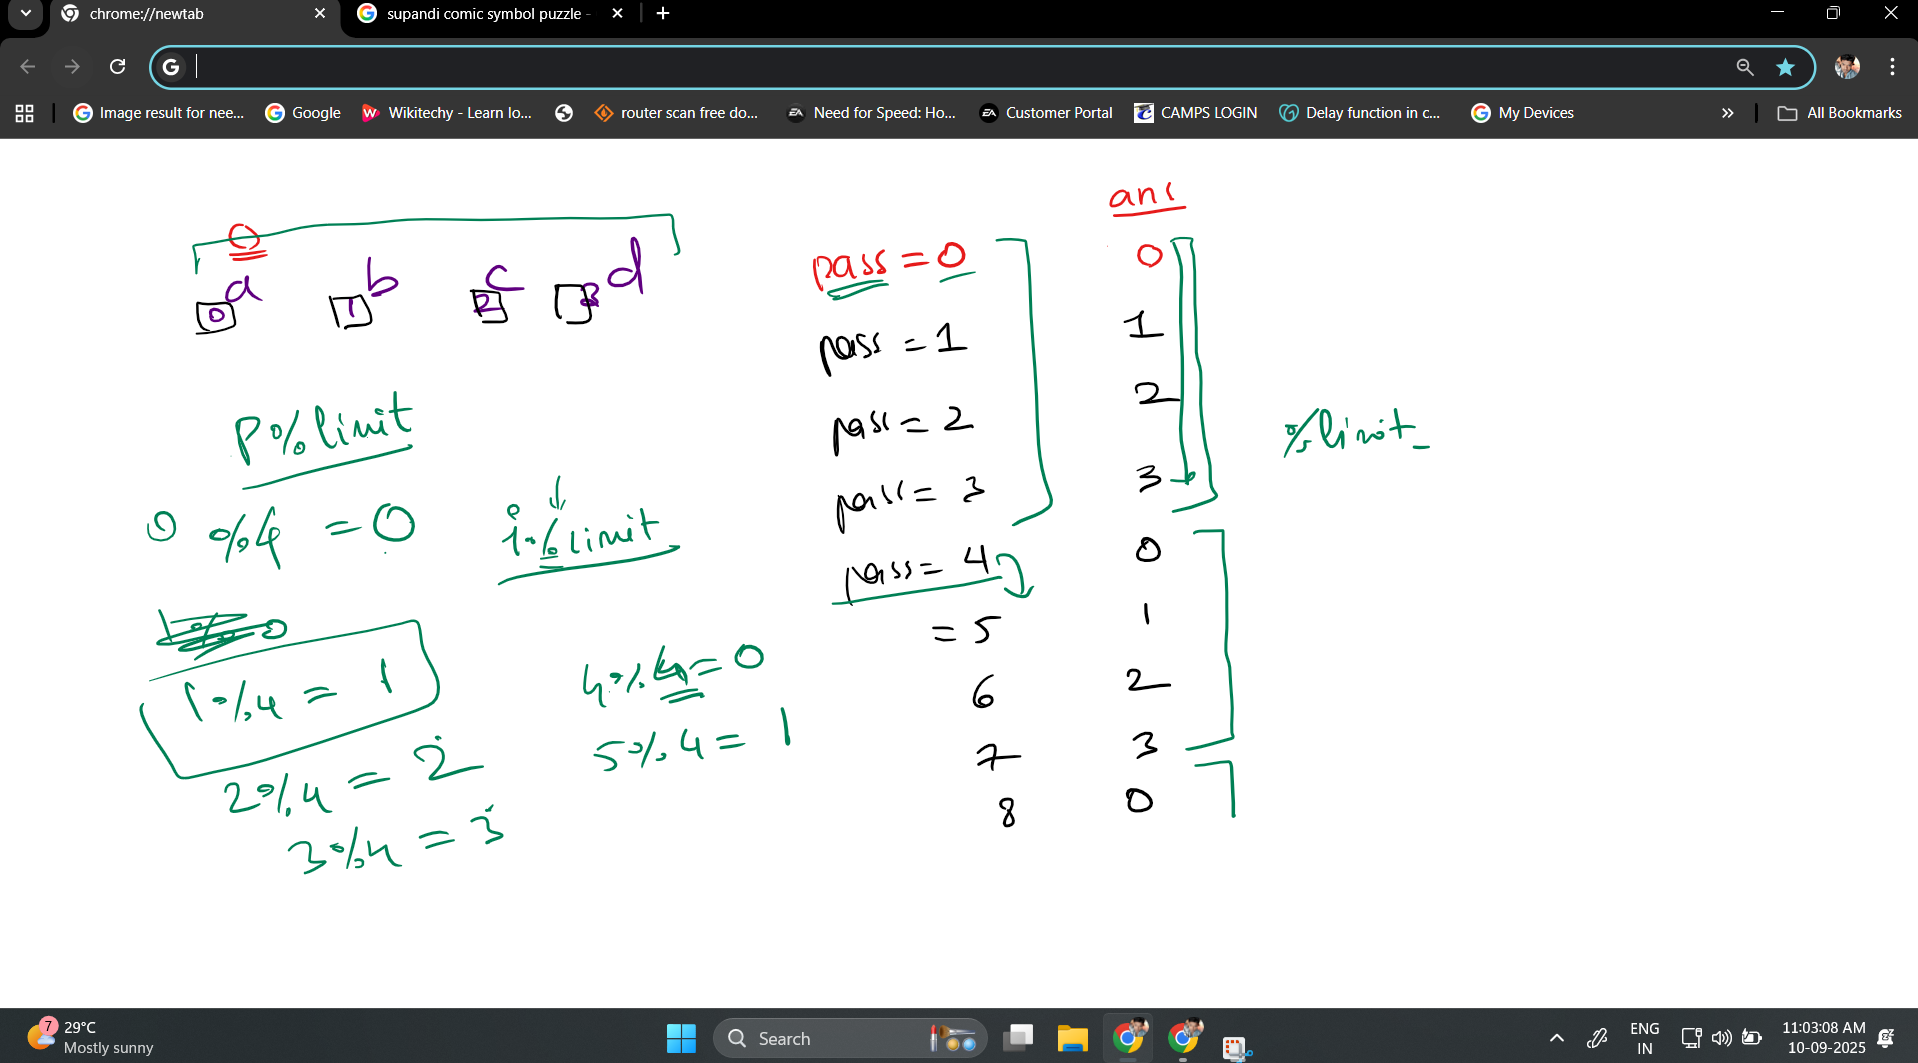 chrome://newtab
supandi comic symbol puzzle -
Image result for nee...
Google
Wikitechy - Learn lo...
router scan free do...
Need for Speed: Ho...
Customer Portal
CAMPS LOGIN
Delay function in c...
My Devices
All Bookmarks
a b c d
0 1 2 3
P%limit
0 %4 = 0
i%limit
1%4 = 1
2%4 = 2
3%4 = 3
4%4 = 0
5%4 = 1
ans
pass = 0 0
pass = 1 1
pass = 2 2
pass = 3 3
pass = 4 0
= 5 1
6 2
7 3
8 0
%limit
7
29°C
Mostly sunny
Search
ENG
IN
11:03:08 AM
10-09-2025